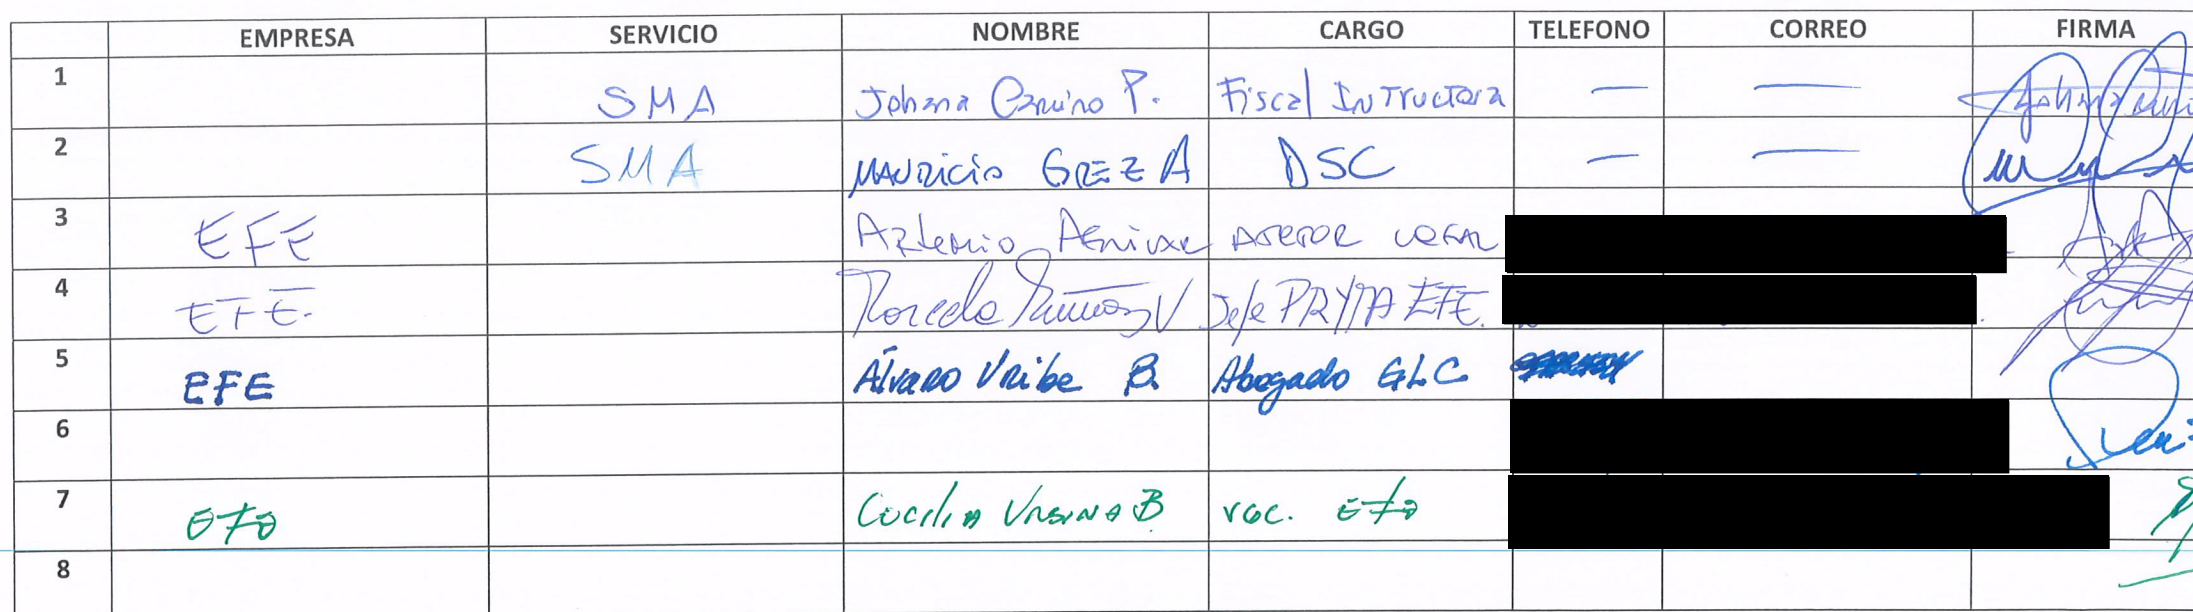 EMPRESA SERVICIO NOMBRE CARGO TELEFONO CORREO FIRMA
1 SMA Johana Cancino P. Fiscal Instructora — —
2 SMA MAURICIO GREZ A DSC — —
3 EFE Artemio ASESOR LEGAL
4 EFE. Marcela Muñoz V Jefe EFE.
5 EFE Álvaro Uribe B. Abogado GLC
6
7 EFE Cecilia B EFE
8